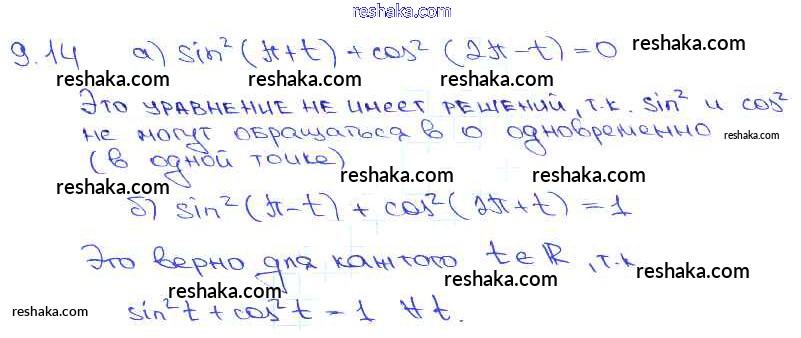 reshaka.com
9.14 а) sin²(π+t) + cos²(2π-t) = 0 reshaka.com
reshaka.com reshaka.com
Это уравнение не имеет решений, т.к. sin² и cos²
не могут обращаться в 0 одновременно reshaka.com
(в одной точке)
reshaka.com reshaka.com reshaka.com
б) sin²(π-t) + cos²(2π+t) = 1
reshaka.com
Это верно для каждого t∈R, т.к.
reshaka.com reshaka.com reshaka.com
reshaka.com sin²t + cos²t = 1 ∀t. reshaka.com